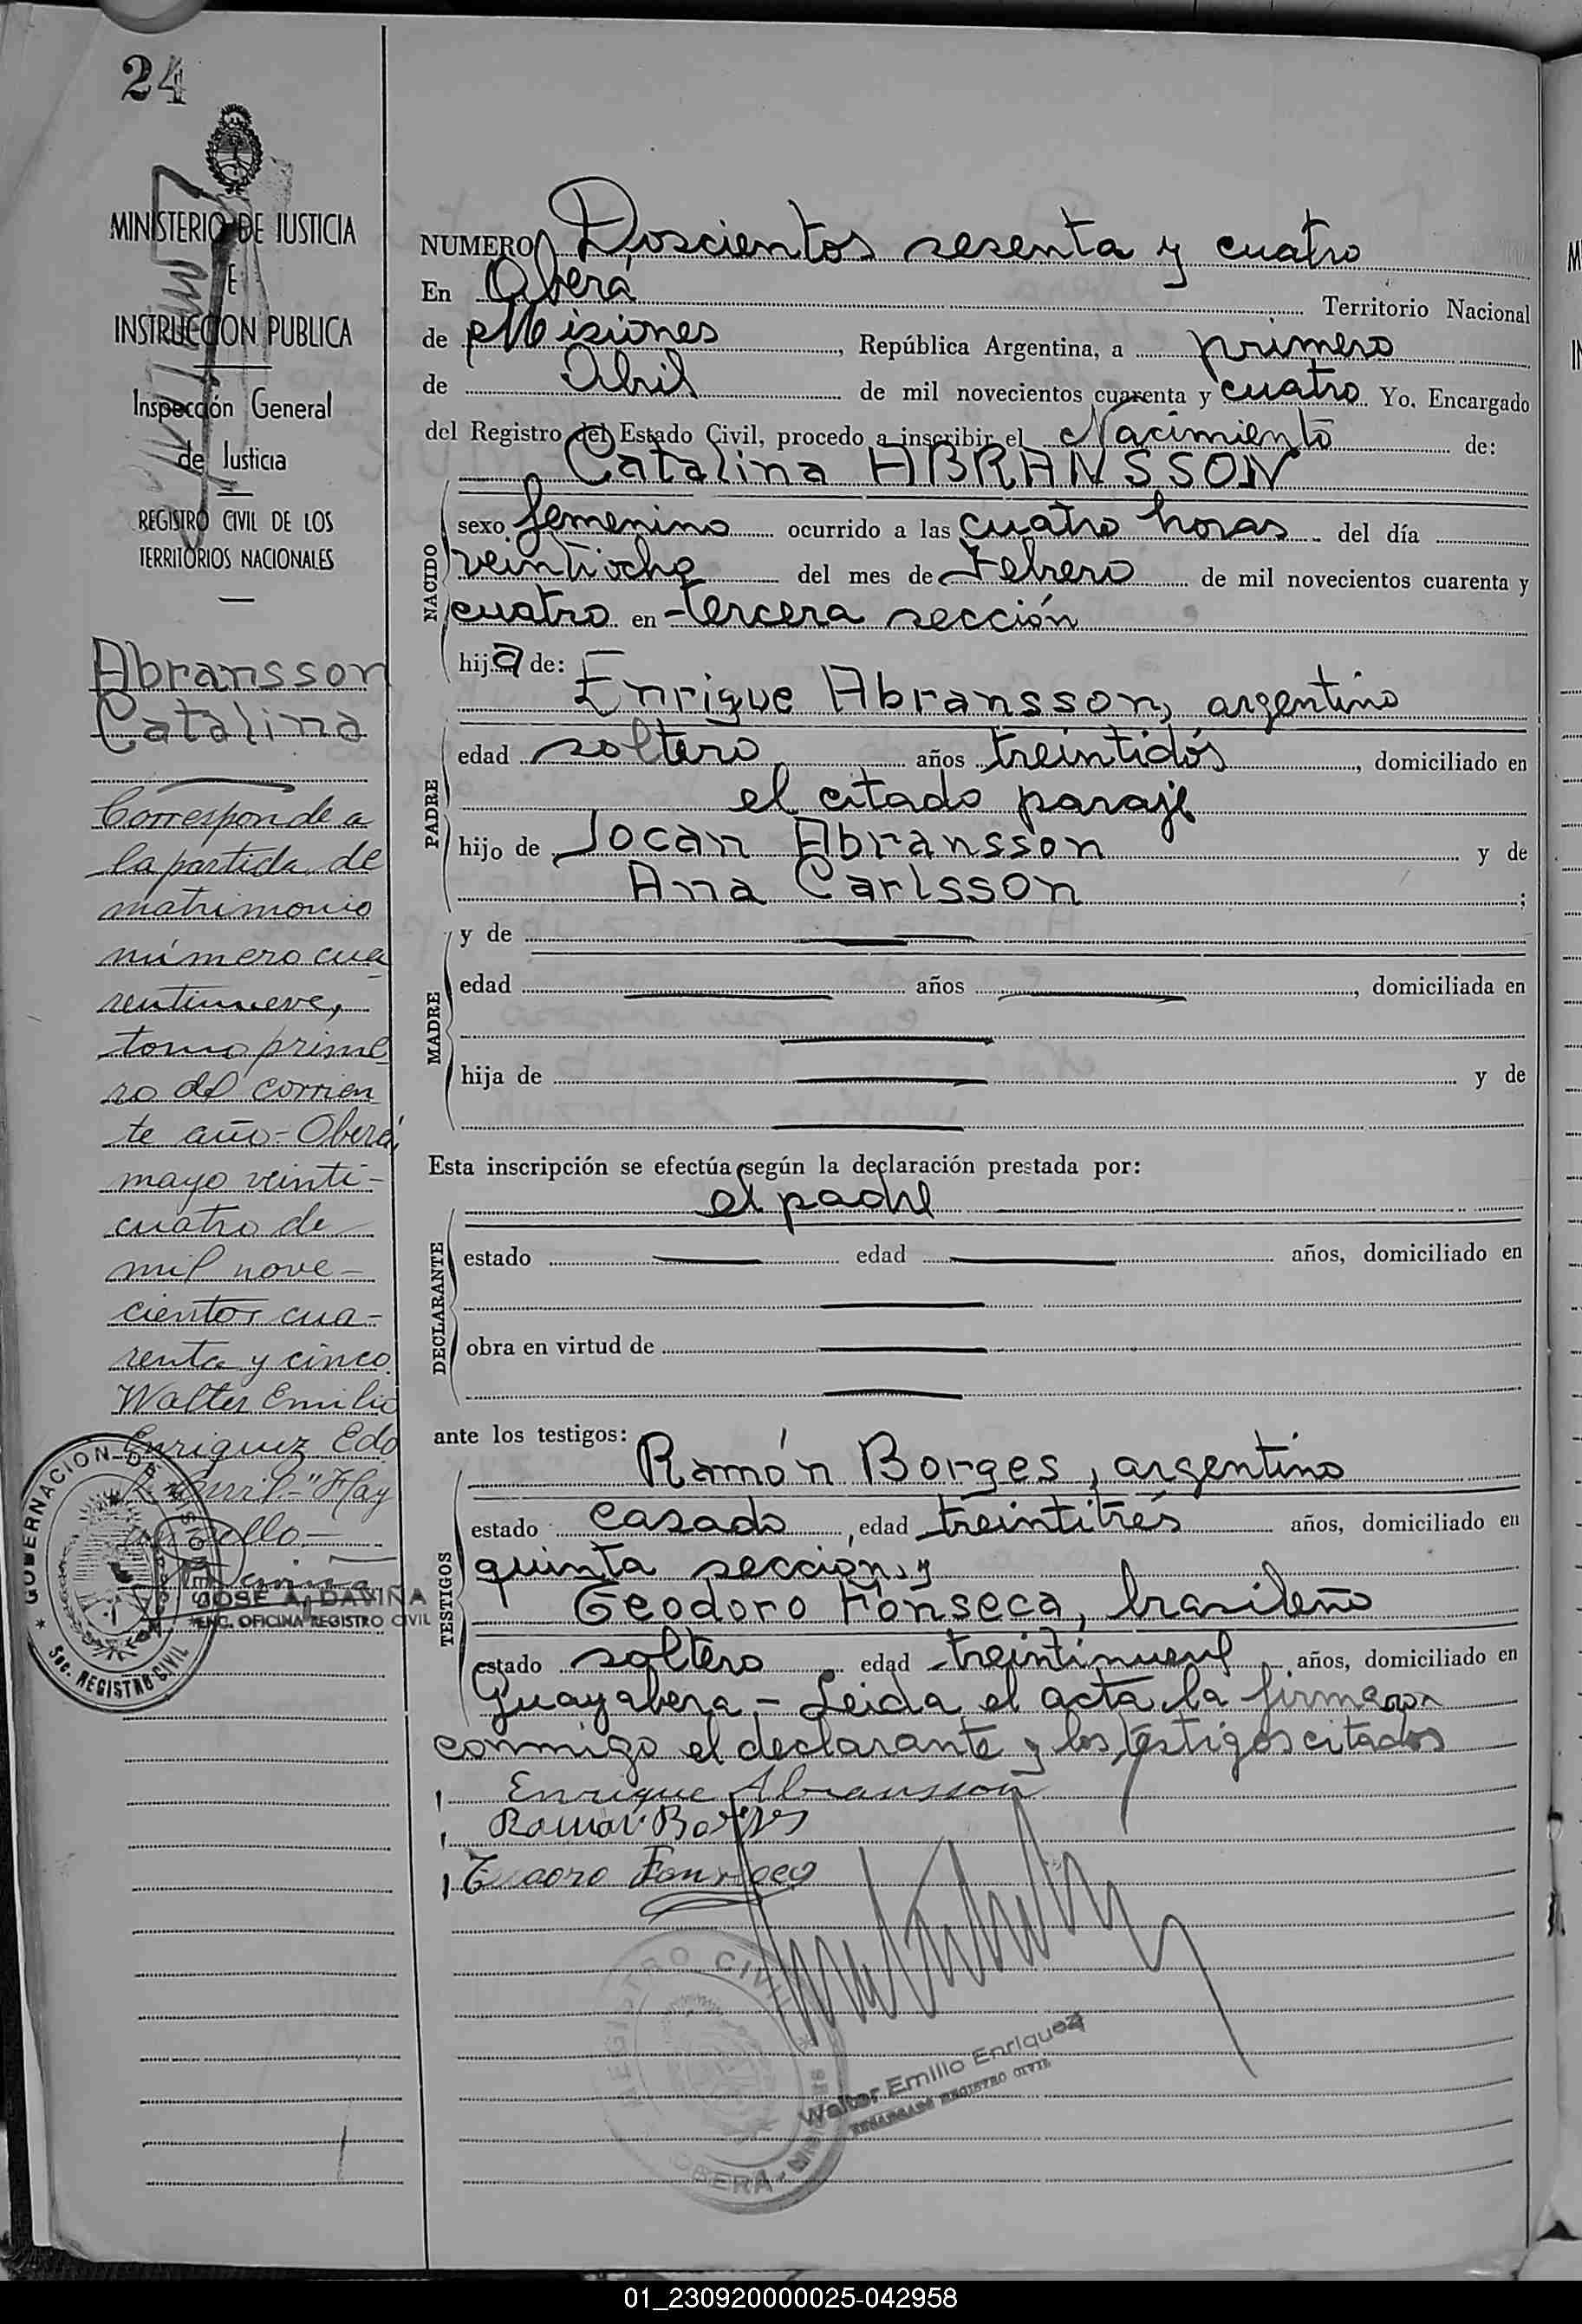 24
MINISTERIO DE JUSTICIA
E
INSTRUCCION PUBLICA
Inspección General
de Justicia
REGISTRO CIVIL DE LOS
TERRITORIOS NACIONALES
Abransson
Catalina
Corresponde a
la partida de
matrimonio
número cua
rentinueve,
tomo prime
ro del corrien
te año - Oberá,
mayo veinti-
cuatro de
mil nove-
cientos cua-
renta y cinco.
Walter Emilio
Enriquez Edo
R. Civil - "Hay
un sello -
GOBERNACION DE MISIONES
* Sec. REGISTRO CIVIL
JOSE A. DAVIÑA
ENC. OFICINA REGISTRO CIVIL
NUMERO Doscientos sesenta y cuatro
En Oberá Territorio Nacional
de Misiones, República Argentina, a primero
de Abril de mil novecientos cuarenta y cuatro Yo, Encargado
del Registro del Estado Civil, procedo a inscribir el Nacimiento de:
Catalina ABRANSSON
NACIDO
sexo femenino ocurrido a las cuatro horas del día
veintiocho del mes de Febrero de mil novecientos cuarenta y
cuatro en tercera sección
hija de:
Enrique Abransson, argentino
PADRE
edad soltero años treintidós, domiciliado en
el citado paraje
hijo de Jocan Abransson y de
Ana Carlsson;
MADRE
y de
edad años, domiciliada en
hija de y de
Esta inscripción se efectúa según la declaración prestada por:
el padre
DECLARANTE
estado edad años, domiciliado en
obra en virtud de
ante los testigos:
Ramón Borges, argentino
TESTIGOS
estado casado, edad treintitrés años, domiciliado en
quinta sección y
Teodoro Fonseca, brasileño
estado soltero edad treintinueve, años, domiciliado en
Guayabera - Leida el acta la firmaron
conmigo el declarante y los testigos citados
Enrique Abransson
Ramon Borges
Teodoro Fonseca
REGISTRO CIVIL
OBERA - MISIONES
Walter Emilio Enriquez
ENCARGADO REGISTRO CIVIL
01_230920000025-042958